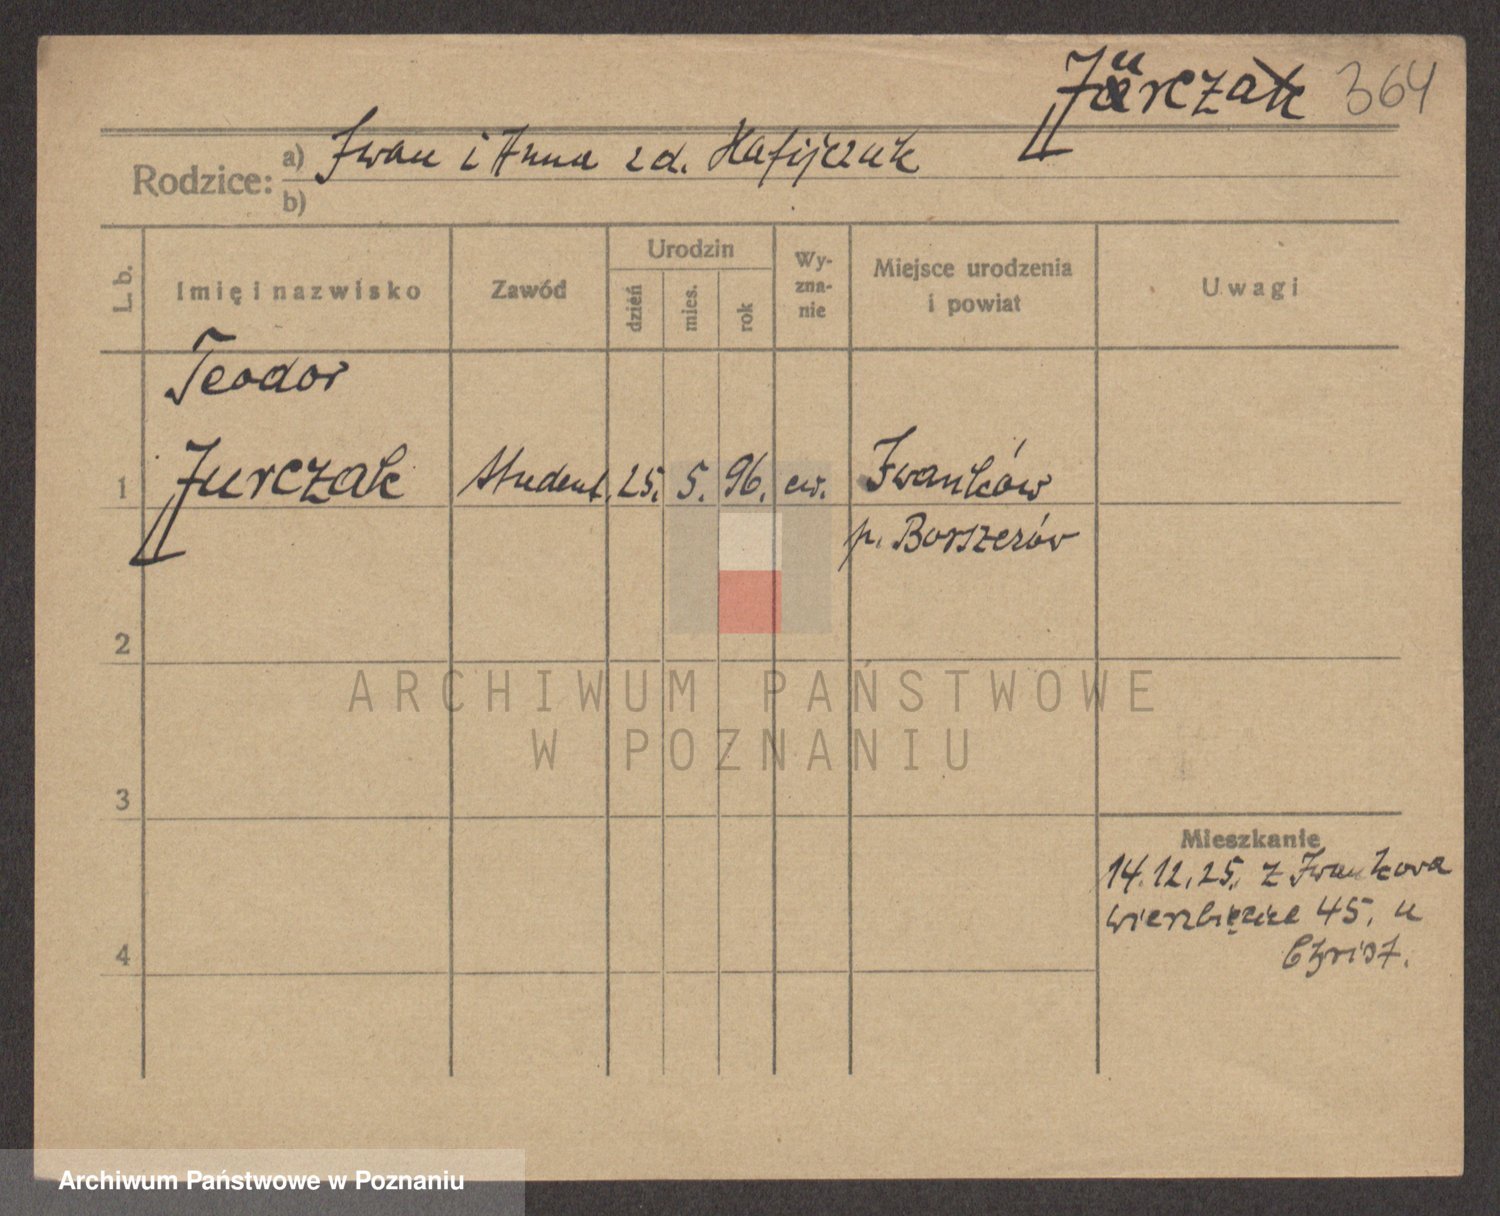 Jurczak 364
Rodzice: a) Iwan i Anna zd. Hafijczuk
b)
L. b. Imię i nazwisko Zawód Urodzin dzień mies. rok Wyznanie Miejsce urodzenia i powiat Uwagi
Teodor
1 Jurczak student 25. 5. 96. ew. Iwanków
p. Borszczów
2
ARCHIWUM PAŃSTWOWE
W POZNANIU
3
Mieszkanie
14.12.25. z Iwankowa
Wierzbięcice 45, u
4
Archiwum Państwowe w Poznaniu